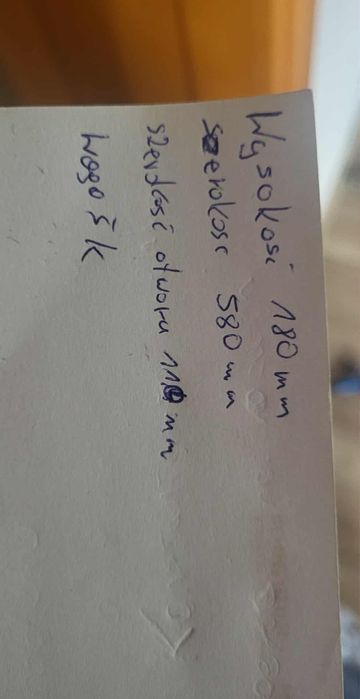 Wysokość 180 mm
szerokość 580 mm
szerokość otworu 110 mm